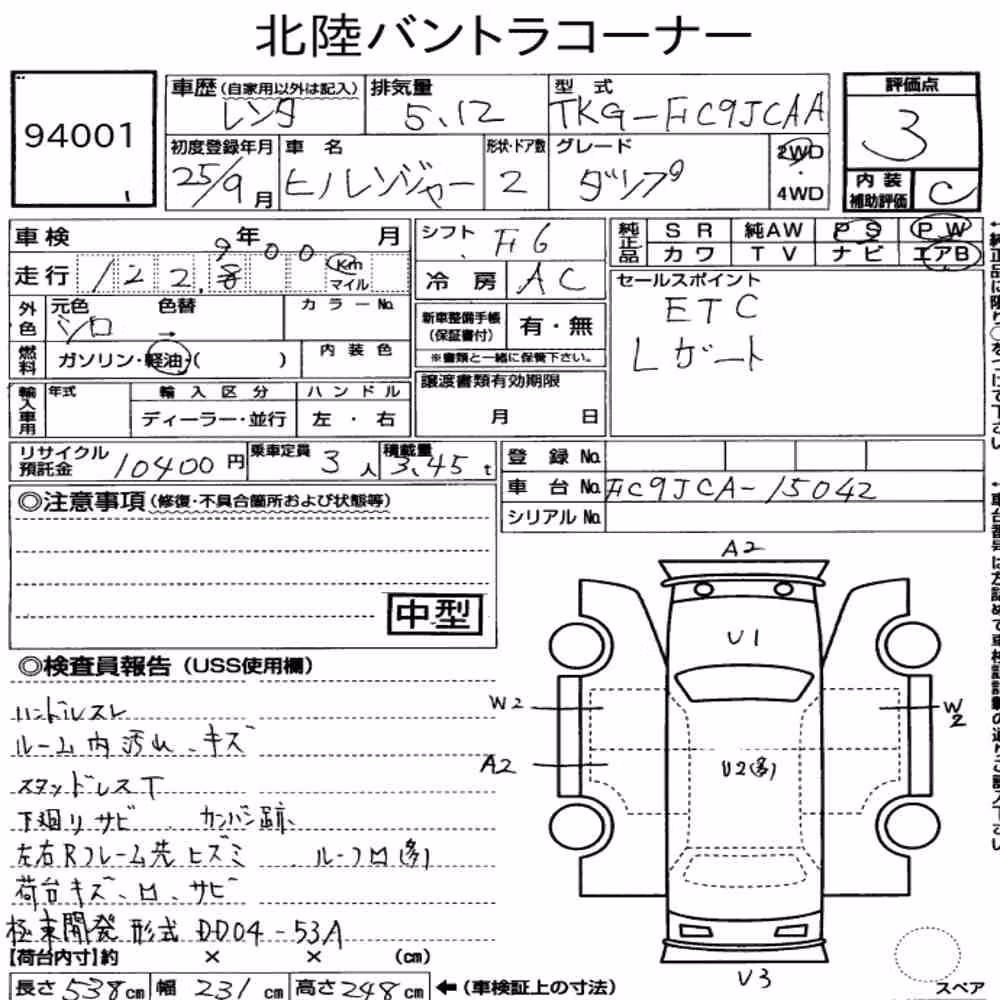 北陸バントラコーナー
94001
1
車歴(自家用以外は記入) 排気量 型式 評価点
レンタ 5.12 TKG-FC9JCAA 3
初度登録年月 車名 形状・ドア数 グレード 2WD・4WD
25/9月 ヒノレンジャー 2 ダンプ
内装補助評価 C
車検 年 月 シフト F6
純正品 SR 純AW PS PW
カワ TV ナビ エアB
走行 122,900 Km マイル 冷房 AC
セールスポイント
ETC
Lゲート
外色 元色 シロ → 色替 カラーNo.
新車整備手帳(保証書付) 有・無
※書類と一緒に保管下さい。
燃料 ガソリン・軽油・( ) 内装色
譲渡書類有効期限
月 日
輸入車用 年式 輸入区分 ハンドル
ディーラー・並行 左・右
リサイクル預託金 10400円 乗車定員 3人 積載量 3.45t
登録No.
車台No. FC9JCA-15042
シリアルNo.
◎注意事項(修復・不具合箇所および状態等)
中型
◎検査員報告(USS使用欄)
ハンドルスレ
ルーム内汚れ、キズ
スタッドレスT
下廻りサビ、カンバン跡、
左右Rフレーム先ヒズミ ルーフロ(多)
荷台キズ、ロ、サビ
極東開発 形式 DD04-53A
【荷台内寸】約 × × (cm)
長さ538cm 幅231cm 高さ248cm ←(車検証上の寸法)
A2
U1
W2
W2
A2
U2(多)
U3
スペア